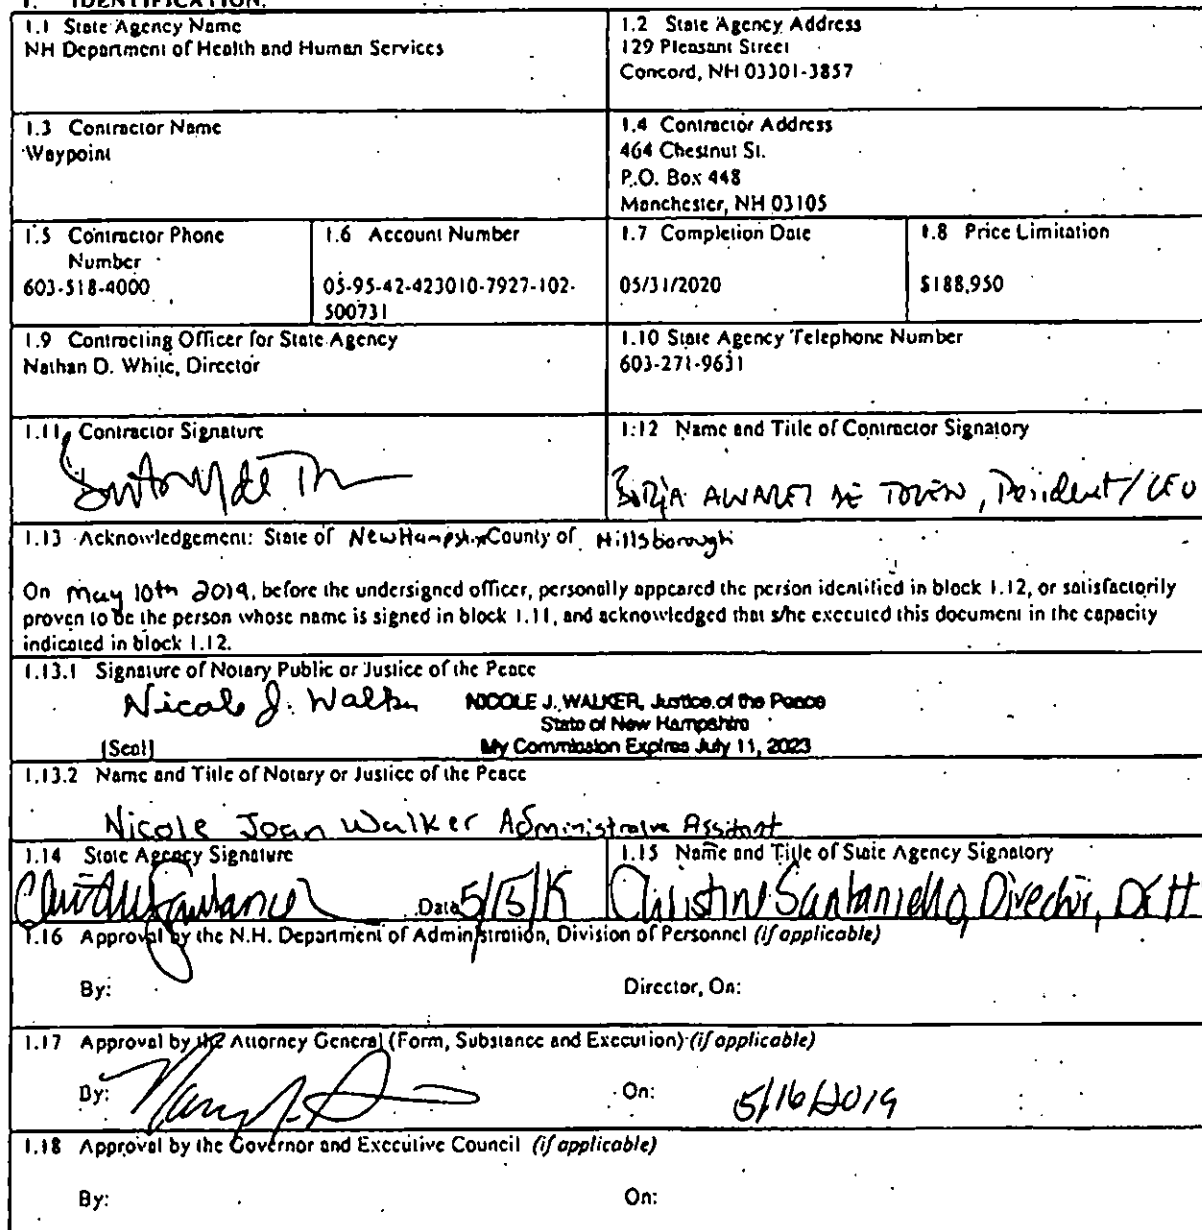 1. IDENTIFICATION.
1.1 State Agency Name
NH Department of Health and Human Services
1.2 State Agency Address
129 Pleasant Street
Concord, NH 03301-3857
1.3 Contractor Name
Waypoint
1.4 Contractor Address
464 Chestnut St.
P.O. Box 448
Manchester, NH 03105
1.5 Contractor Phone
Number
603-518-4000
1.6 Account Number
05-95-42-423010-7927-102-
500731
1.7 Completion Date
05/31/2020
1.8 Price Limitation
$188,950
1.9 Contracting Officer for State Agency
Nathan D. White, Director
1.10 State Agency Telephone Number
603-271-9631
1.11 Contractor Signature
1.12 Name and Title of Contractor Signatory
President/CEO
1.13 Acknowledgement: State of New Hampshire County of Hillsborough
On May 10th 2019, before the undersigned officer, personally appeared the person identified in block 1.12, or satisfactorily
proven to be the person whose name is signed in block 1.11, and acknowledged that s/he executed this document in the capacity
indicated in block 1.12.
1.13.1 Signature of Notary Public or Justice of the Peace
Nicole J. Walker
NICOLE J. WALKER, Justice of the Peace
State of New Hampshire
[Seal]
My Commission Expires July 11, 2023
1.13.2 Name and Title of Notary or Justice of the Peace
Nicole Joan Walker Administrative Assistant
1.14 State Agency Signature
Date
1.15 Name and Title of State Agency Signatory
Christine Santaniello, Director,
1.16 Approval by the N.H. Department of Administration, Division of Personnel (if applicable)
By:
Director, On:
1.17 Approval by the Attorney General (Form, Substance and Execution) (if applicable)
By:
On: 5/16/2019
1.18 Approval by the Governor and Executive Council (if applicable)
By:
On: